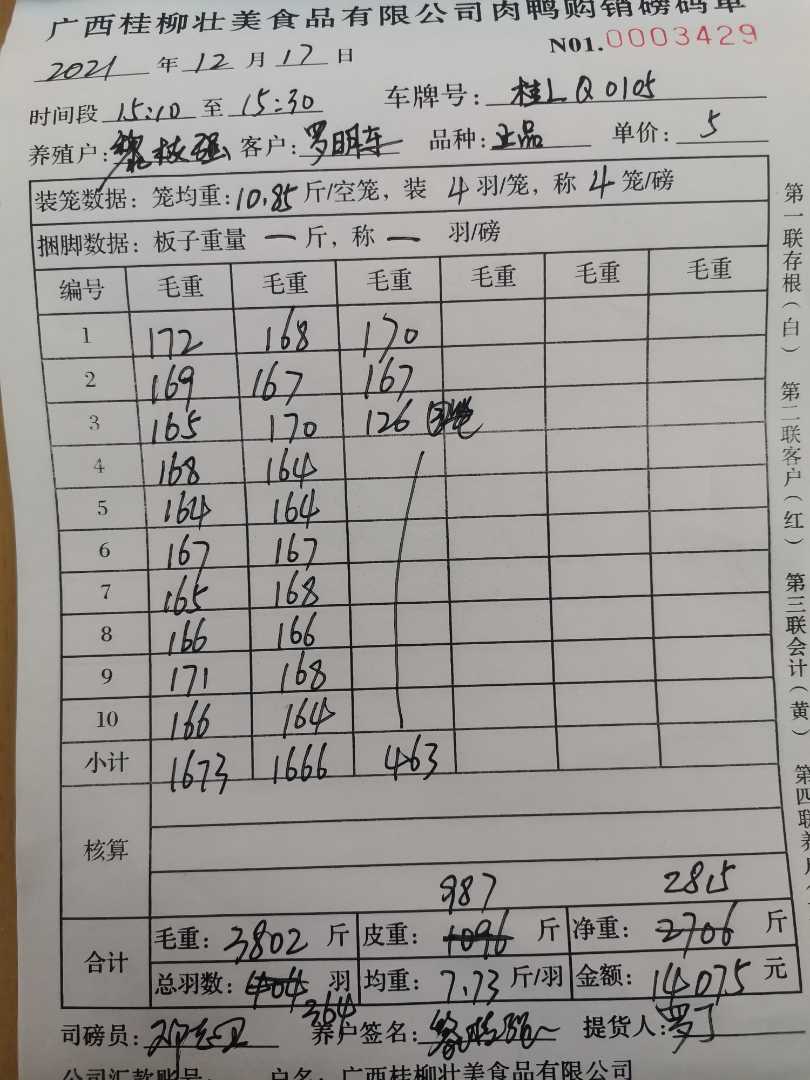 广西桂柳壮美食品有限公司肉鸭购销磅码单
2021 年 12 月 17 日 N01.0003429
时间段 15:10 至 15:30 车牌号: 桂L Q0105
养殖户: 客户: 罗明东 品种: 正品 单价: 5
装笼数据: 笼均重: 10.85 斤/空笼, 装 4 羽/笼, 称 4 笼/磅
捆脚数据: 板子重量 一 斤, 称 一 羽/磅
编号 毛重 毛重 毛重 毛重 毛重 毛重
1 172 168 170
2 169 167 167
3 165 170 126
4 168 164
5 164 164
6 167 167
7 165 168
8 166 166
9 171 168
10 166 164
小计 1673 1666 463
核算
987 2815
合计 毛重: 3802 斤 皮重: 1096 斤 净重: 2706 斤
总羽数: 404 羽 均重: 7.73 斤/羽 金额: 14075 元
364
司磅员: 养户签名: 提货人: 罗丁
公司汇款账号: 户名: 广西桂柳壮美食品有限公司
第一联存根(白) 第二联客户(红) 第三联会计(黄) 第四联养户